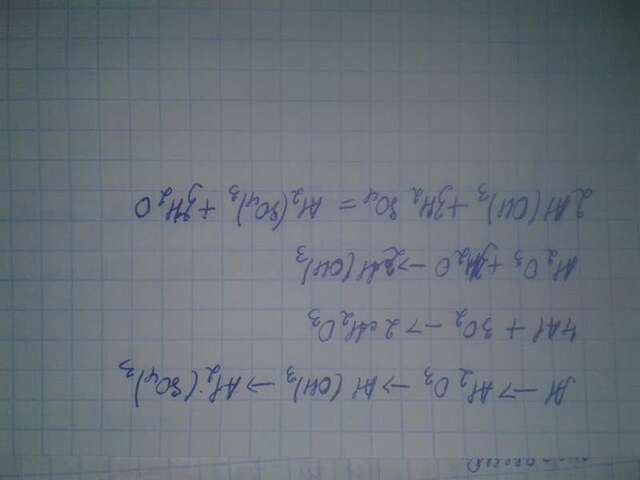 Al → Al₂O₃ → Al(OH)₃ → Al₂(SO₄)₃
4Al + 3O₂ → 2Al₂O₃
Al₂O₃ + 3H₂O → 2Al(OH)₃
2Al(OH)₃ + 3H₂SO₄ = Al₂(SO₄)₃ + 3H₂O